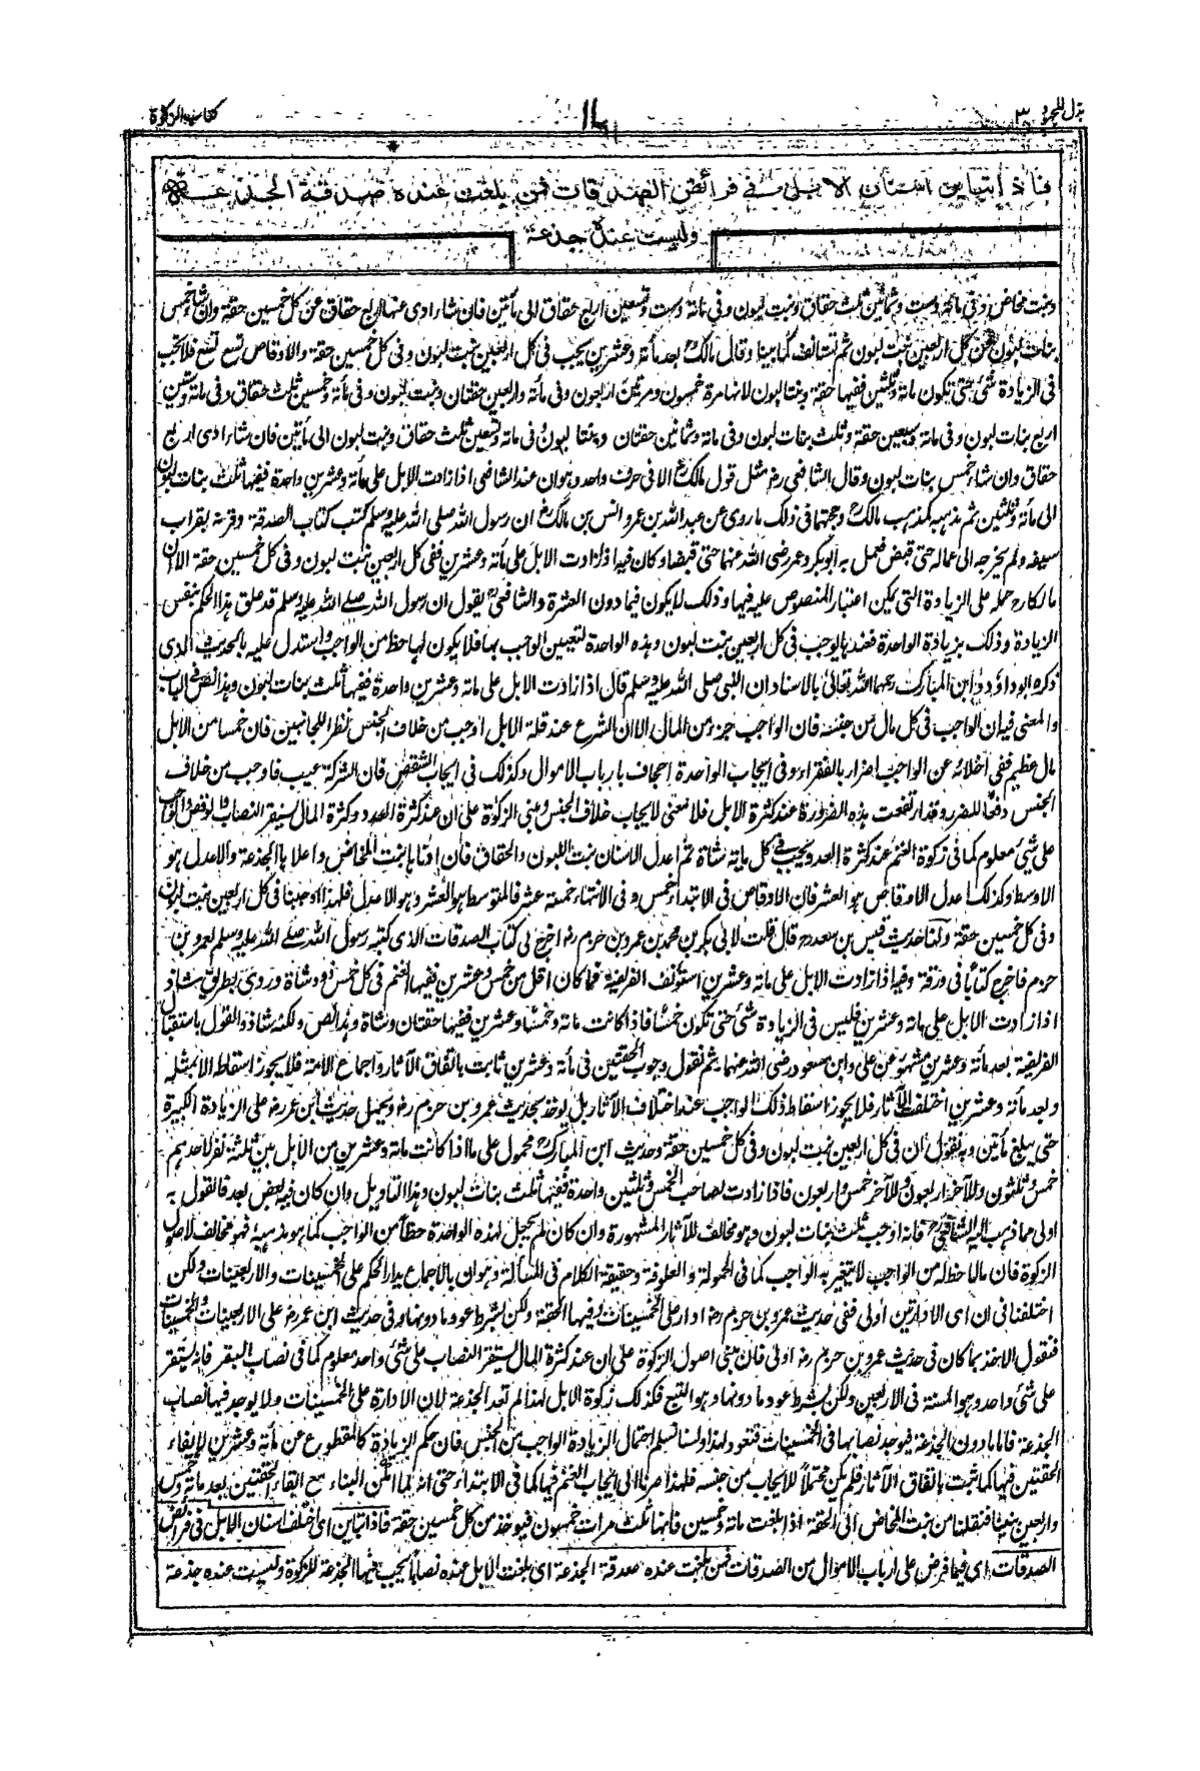 بذل المجهود ٣
١٤
كتاب الزكوة
فاذا تباين اسنان الابل فى فرائض الصدقات فمن بلغت عنده صدقة الجذعة
وليست عنده جذعة
وبنت مخاض وفى مائة وست وثمانين ثلث حقاق وبنت لبون وفى مائة وست وتسعين اربع حقاق الى مأتين فان شاء ادى عنها اربع حقاق عن كل خمسين حقة وان شاء خمس
بنات لبون عن كل اربعين بنت لبون ثم تستانف كما بينا وقال مالك بعد مأة وعشرين يجب فى كل اربعين بنت لبون وفى كل خمسين حقة والاوقاص تسع تسع فلا يجب
فى الزيادة شئ حتى تكون مائة وثلثين ففيها حقة وبنتا لبون لانها مرة خمسون ومرتين اربعون وفى مأة واربعين حقتان وبنت لبون وفى مأة وخمسين ثلث حقاق وفى مائة وستين
اربع بنات لبون وفى مائة وسبعين حقة وثلث بنات لبون وفى مائة وثمانين حقتان وبنتا لبون وفى مائة وتسعين ثلث حقاق وبنت لبون الى مأتين فان شاء ادى اربع
حقاق وان شاء خمس بنات لبون وقال الشافعى رح مثل قول مالك الا فى حرف واحد وهو ان عند الشافعى اذا زادت الابل على مأة وعشرين واحدة ففيها ثلث بنات لبون
الى مأة وثلثين ثم مذهبه كمذهب مالك وحجتهما فى ذلك ما روى عن عبد الله بن عمر وانس بن مالك ان رسول الله صلى الله عليه وسلم كتب كتاب الصدقة وقرنه بقراب
سيفه ولم يخرجه الى عماله حتى قبض فعمل به ابو بكر وعمر رضى الله عنهما حتى قبضا وكان فيه اذا زادت الابل على مأة وعشرين ففى كل اربعين بنت لبون وفى كل خمسين حقة الا ان
مالكا رح حمله على الزيادة التى يمكن اعتبار المنصوص عليه فيها وذلك لا يكون فيما دون العشرة والشافعى يقول ان رسول الله صلى الله عليه وسلم قد علق هذا الحكم بنفس
الزيادة وذلك بزيادة الواحدة فعندها يوجب فى كل اربعين بنت لبون وهذه الواحدة لتعيين الواجب بها فلا يكون لها حظ من الواجب واستدل عليه بالحديث الذى
ذكره ابو داؤد وابن المبارك رحمهما الله تعالى بالاسناد ان النبى صلى الله عليه وسلم قال اذا زادت الابل على مائة وعشرين واحدة ففيها ثلث بنات لبون وهذا نص فى الباب
والمعنى فيه ان الواجب فى كل مال من جنسه فان الواجب جزء من المال الا ان الشرع عند قلة الابل اوجب من خلاف الجنس نظرا للجانبين فان خمسا من الابل
مال عظيم ففى اخلائه عن الواجب اضرار بالفقراء وفى ايجاب الواحدة اجحاف بارباب الاموال وكذلك فى ايجاب الشقص فان الشركة عيب فاوجب من خلاف
الجنس دفعا للضرر وقد ارتفعت هذه الضرورة عند كثرة الابل فلا معنى لايجاب خلاف الجنس ومبنى الزكوة على ان عند كثرة العدد وكثرة المال يستقر النصاب والوقص والواجب
على شئ معلوم كما فى زكوة الغنم عند كثرة العدد يجب فى كل مائة شاة ثم اعدل الاسنان بنت اللبون والحقاق فان ادناها بنت المخاض واعلاها الجذعة والاعدل هو
الاوسط وكذلك اعدل الاوقاص هو العشر فان الاوقاص فى الابتداء خمس وفى الانتهاء خمسة عشر فالمتوسط هو العشر وهو الاعدل فلهذا اوجبنا فى كل اربعين بنت لبون
وفى كل خمسين حقة ولنا حديث قيس بن سعد رح قال قلت لابى بكر بن محمد بن عمرو بن حزم رض اخرج لى كتاب الصدقات الذى كتبه رسول الله صلى الله عليه وسلم لعمرو بن
حزم فاخرج كتابا فى ورقة وفيه اذا زادت الابل على مائة وعشرين استونف الفريضة فما كان اقل من خمس وعشرين ففيها الغنم فى كل خمس ذود شاة وروى بطريق شاذ
اذا زادت الابل على مائة وعشرين فليس فى الزيادة شئ حتى تكون خمسا فاذا كانت مائة وخمسا وعشرين ففيها حقتان وشاة وهذا نص ولكنه شاذ والقول باستقبال
الفريضة بعد مأة وعشرين مشهور عن على وابن مسعود رضى الله عنهما ثم نقول وجوب الحقتين فى مأة وعشرين ثابت باتفاق الآثار واجماع الامة فلا يجوز اسقاطه الا بمثله
وبعد مأة وعشرين اختلفت الآثار فلا يجوز اسقاط ذلك الواجب عند اختلاف الآثار بل يؤخذ بحديث عمرو بن حزم رض ويحمل حديث ابن عمر رض على الزيادة الكبيرة
حتى يبلغ مأتين وبه نقول ان فى كل اربعين بنت لبون وفى كل خمسين حقة وحديث ابن المبارك محمول على ما اذا كانت مائة وعشرين من الابل بين ثلثة نفر لاحدهم
خمس وثلثون وللآخر اربعون وللآخر خمس واربعون فاذا زادت لصاحب الخمس وثلثين واحدة ففيها ثلث بنات لبون وهذا التاويل وان كان فيه بعض بعد فالقول به
اولى مما ذهب اليه الشافعى رح فانه اوجب ثلث بنات لبون وهو مخالف للآثار المشهورة وان كان لم يجعل لهذه الواحدة حظا من الواجب كما هو مذهبه فهو مخالف لاصول
الزكوة فان ما لا حظ له من الواجب لا يتغير به الواجب كما فى الحمولة والعلوفة وحقيقة الكلام فى المسألة وهو ان بالاجماع يدار الحكم على الخمسينات والاربعينات ولكن
اختلفنا فى ان اى الادارتين اولى ففى حديث عمرو بن حزم رض ادار على الخمسينات وفيها الحقة ولكن بشرط عود ما دونها وفى حديث ابن عمر رض على الاربعينات والخمسينات
فنقول الاخذ بما كان فى حديث عمرو بن حزم رض اولى فان مبنى اصول الزكوة على ان عند كثرة المال يستقر النصاب على شئ واحد معلوم كما فى نصاب البقر فانه يستقر
على شئ واحد وهو المسنة فى الاربعين ولكن بشرط عود ما دونها وهو التبيع فكذلك زكوة الابل لهذا لم تعد الجذعة لان الادارة على الخمسينات ولا يوجد فيها نصاب
الجذعة فاما ما دون الجذعة فيوجد نصابها فى الخمسينات فتعود لهذا ولسنا نسلم احتمال الزيادة الواجب من الجنس فان حكم الزيادة كالمقطوع عن مأة وعشرين لايفاء
الحقتين فيها كما ثبت باتفاق الآثار فلم يكن محتملا للايجاب من جنسه فلهذا صرنا الى ايجاب الغنم فيها كما فى الابتداء حتى انه لما امكن البناء مع ابقاء الحقتين بعد مائة وخمس
واربعين بنينا فنقلنا من بنت المخاض الى الحقة اذا بلغت مائة وخمسين فانها ثلث مرات خمسون فيؤخذ من كل خمسين حقة فاذا تباين اى اختلف اسنان الابل فى فرائض
الصدقات اى فيما فرض على ارباب الاموال من الصدقات فمن بلغت عنده صدقة الجذعة اى بلغت الابل عنده نصابا يجب فيها الجذعة للزكوة وليست عنده جذعة